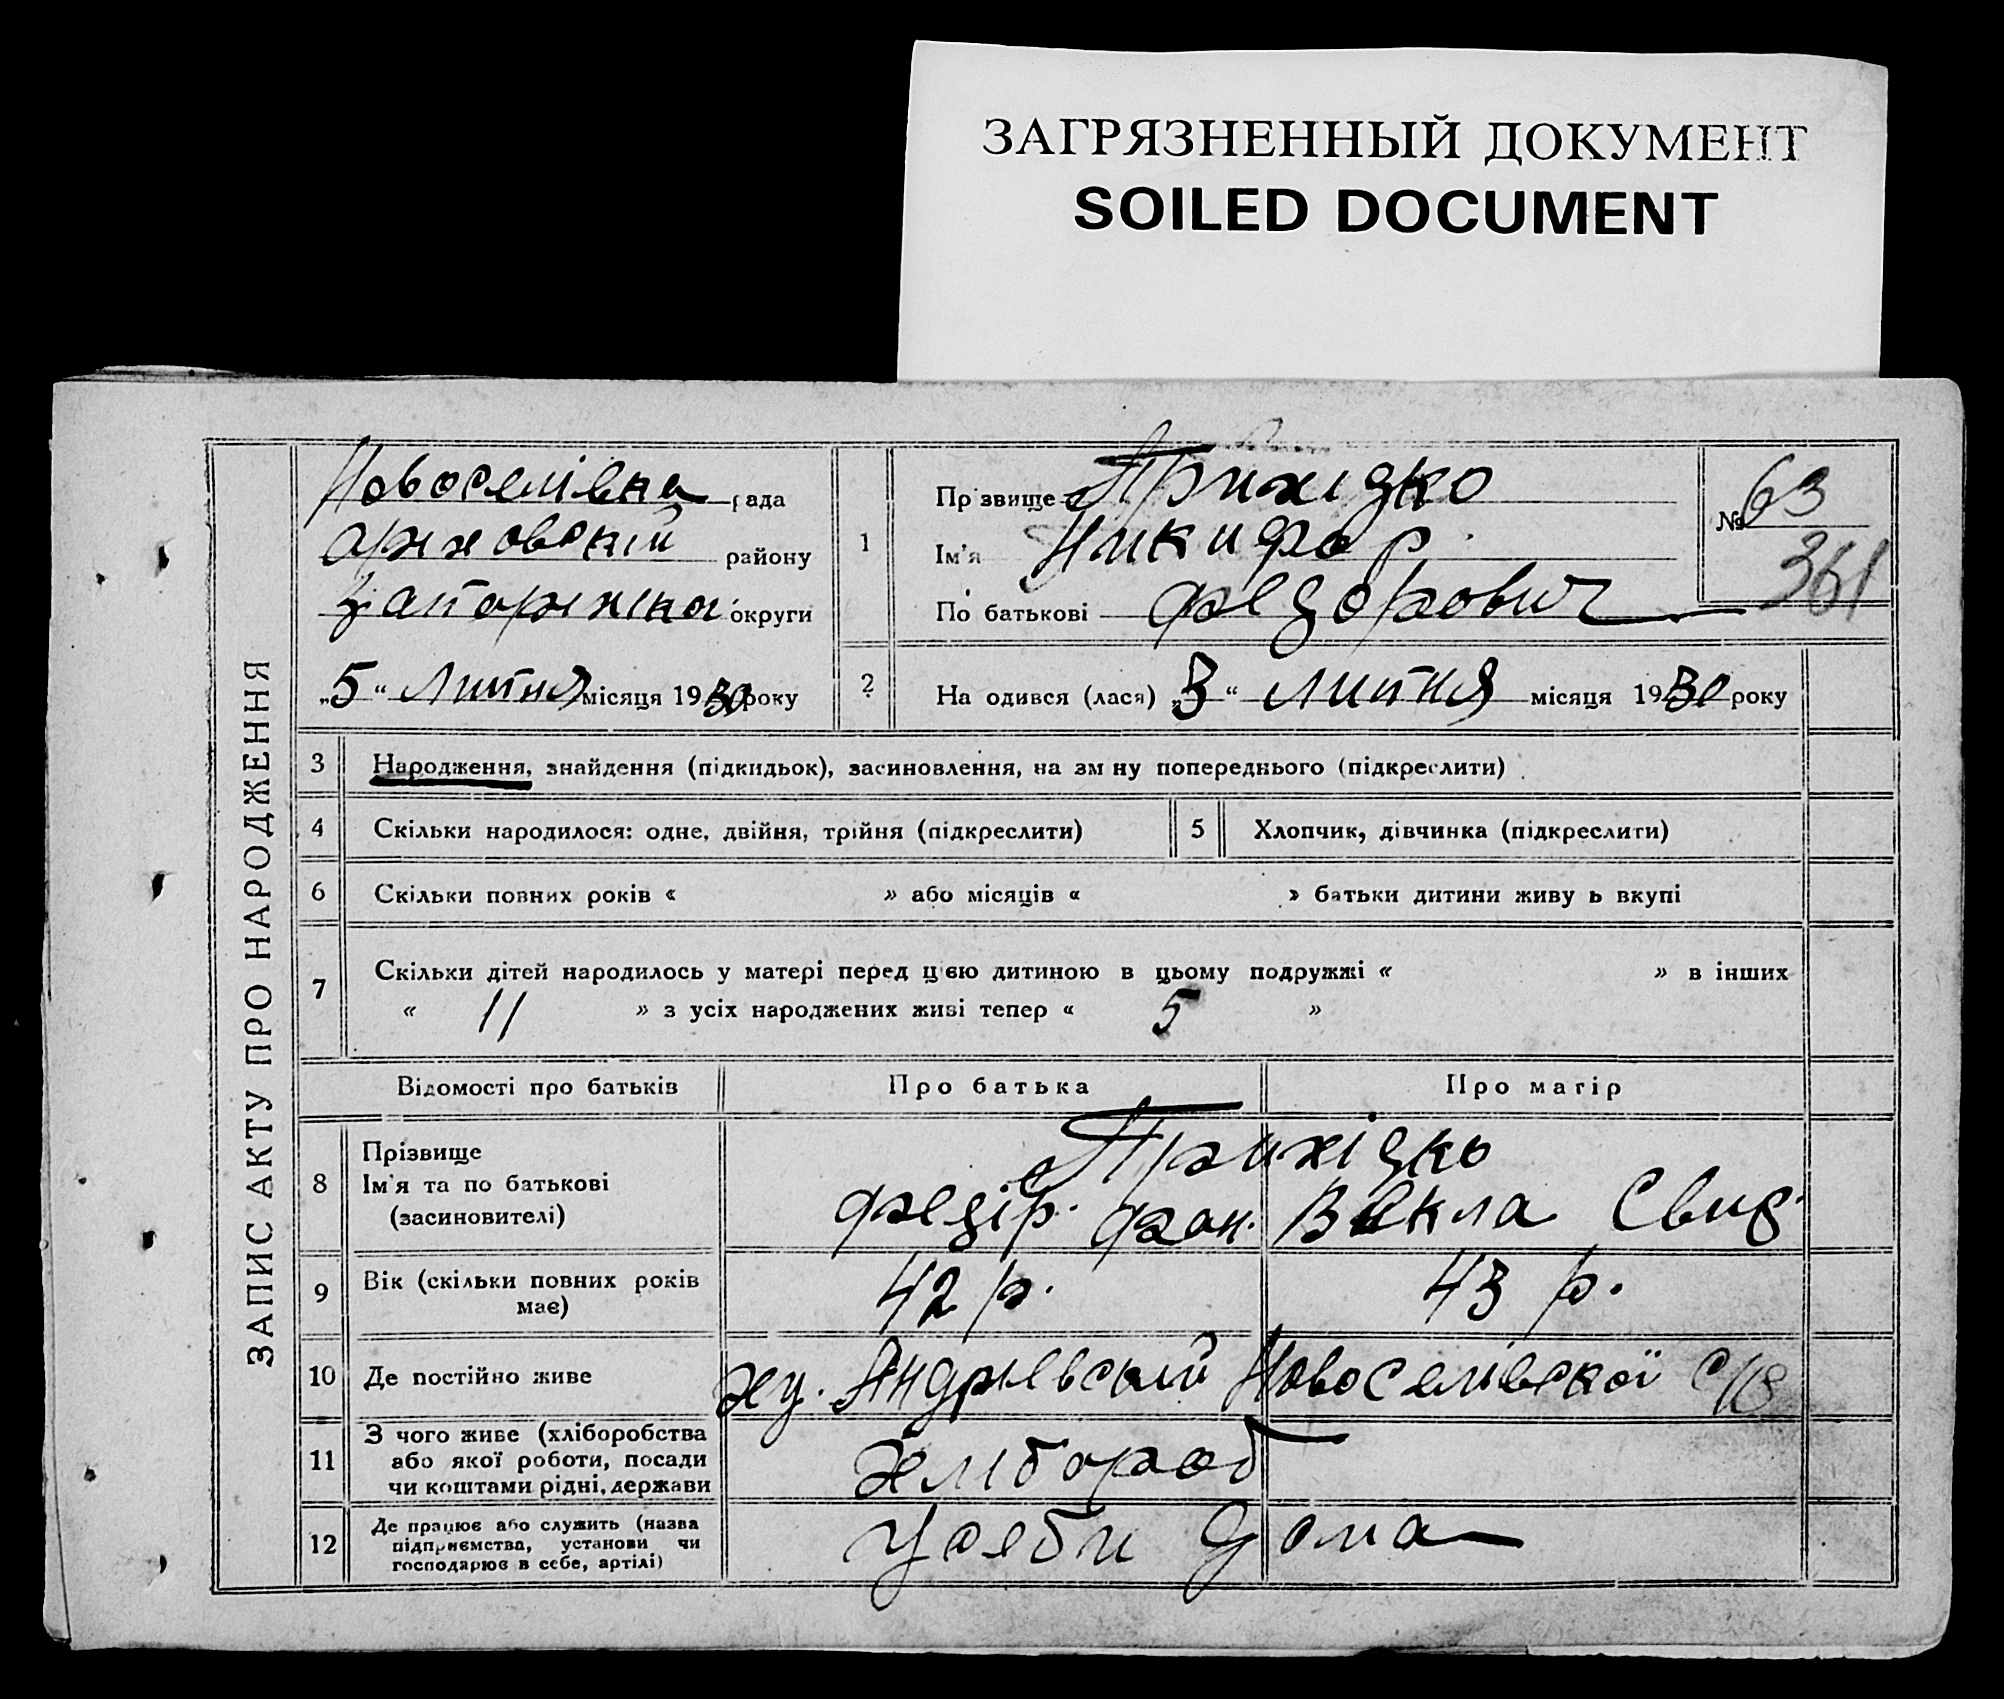 ЗАГРЯЗНЕННЫЙ ДОКУМЕНТ
SOILED DOCUMENT
ЗАПИС АКТУ ПРО НАРОДЖЕННЯ
Новоселівка рада
району
округи
„5“ Липня місяця 1930 року
1
Прізвище Прихідко
Ім'я Никифор
По батькові Федорович
№ 63
361
2
На одився (лася) „3“ липня місяця 1930 року
3 Народження, знайдення (підкидьок), засиновлення, на зм ну попереднього (підкреслити)
4 Скільки народилося: одне, двійня, трійня (підкреслити)
5 Хлопчик, дівчинка (підкреслити)
6 Скільки повних років « » або місяців « » батьки дитини живу ь вкупі
7 Скільки дітей народилось у матері перед цією дитиною в цьому подружжі « » в інших
« 11 » з усіх народжених живі тепер « 5 »
Відомості про батьків Про батька Про матір
8 Прізвище
Ім'я та по батькові
(засиновителі)
Прихідко
Федір. Векла Свид.
9 Вік (скільки повних років
має)
42 р. 43 р.
10 Де постійно живе ху. Андрієвський Новоселівскої с/р
11 З чого живе (хліборобства
або якої роботи, посади
чи коштами рідні, держави
хлібороб
12 Де працює або служить (назва
підприємства, установи чи
господарює в себе, артілі)
у себи дома